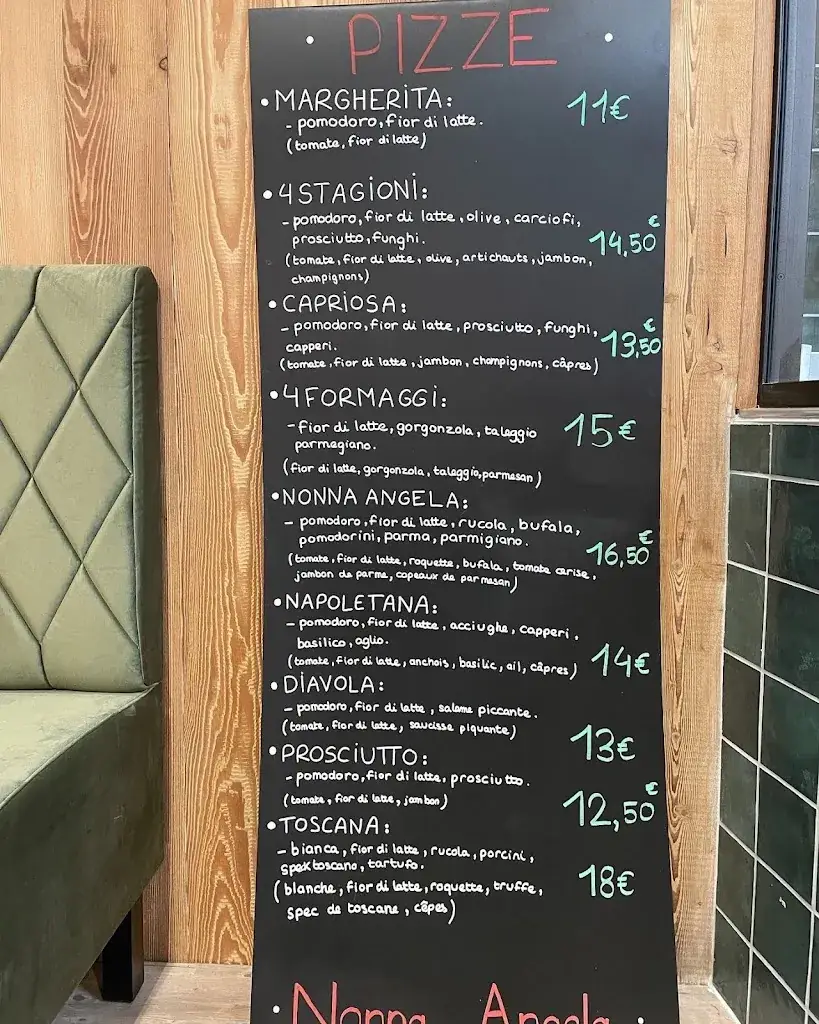 • PIZZE •
• MARGHERITA: 11€
- pomodoro, fior di latte.
(tomate, fior di latte)
• 4 STAGIONI:
- pomodoro, fior di latte, olive, carciofi,
prosciutto, funghi. 14,50€
(tomate, fior di latte, olive, artichauts, jambon,
champignons)
• CAPRIOSA:
- pomodoro, fior di latte, prosciutto, funghi,
capperi. 13,50€
(tomate, fior di latte, jambon, champignons, câpres)
• 4 FORMAGGI:
- fior di latte, gorgonzola, taleggio 15€
parmegiano.
(fior di latte, gorgonzola, taleggio, parmesan)
• NONNA ANGELA:
- pomodoro, fior di latte, rucola, bufala,
pomodorini, parma, parmigiano. 16,50€
(tomate, fior di latte, roquette, bufala, tomate cerise,
jambon de parme, copeaux de parmesan)
• NAPOLETANA:
- pomodoro, fior di latte, acciughe, capperi,
basilico, aglio.
(tomate, fior di latte, anchois, basilic, ail, câpres) 14€
• DIAVOLA:
- pomodoro, fior di latte, salame piccante.
(tomate, fior di latte, saucisse piquante) 13€
• PROSCIUTTO:
- pomodoro, fior di latte, prosciutto.
(tomate, fior di latte, jambon) 12,50€
• TOSCANA:
- bianca, fior di latte, rucola, porcini,
spek toscano, tartufo. 18€
(blanche, fior di latte, roquette, truffe,
spec de toscane, cêpes)
• Nonna Angela •